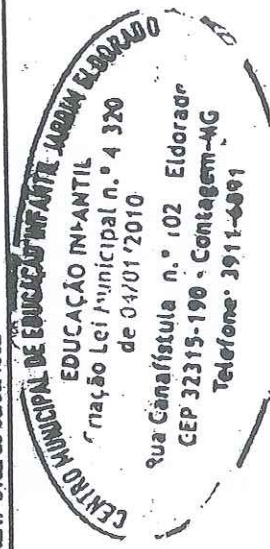 CENTRO MUNICIPAL DE EDUCAÇÃO INFANTIL JARDIM ELDORADO
EDUCAÇÃO INFANTIL
Criação Lei Municipal n.º 4 320
de 04/01/2010
Rua Canafístula n.º 102 Eldorado
CEP 32315-190 - Contagem-MG
Telefone: 3911-